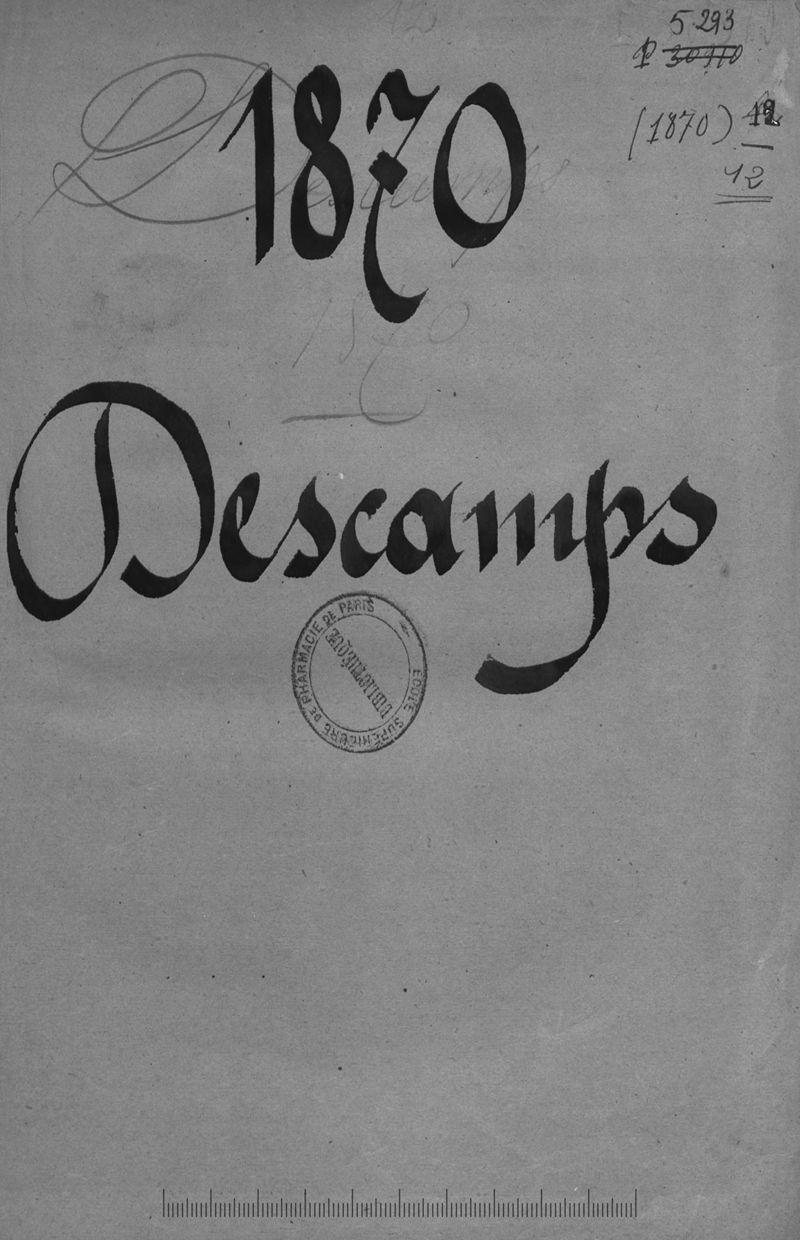 5.293
P 30110
(1870) 12
12
1870
Descamps
Descamps
1870
ECOLE SUPÉRIEURE DE PHARMACIE DE PARIS
BIBLIOTHÈQUE